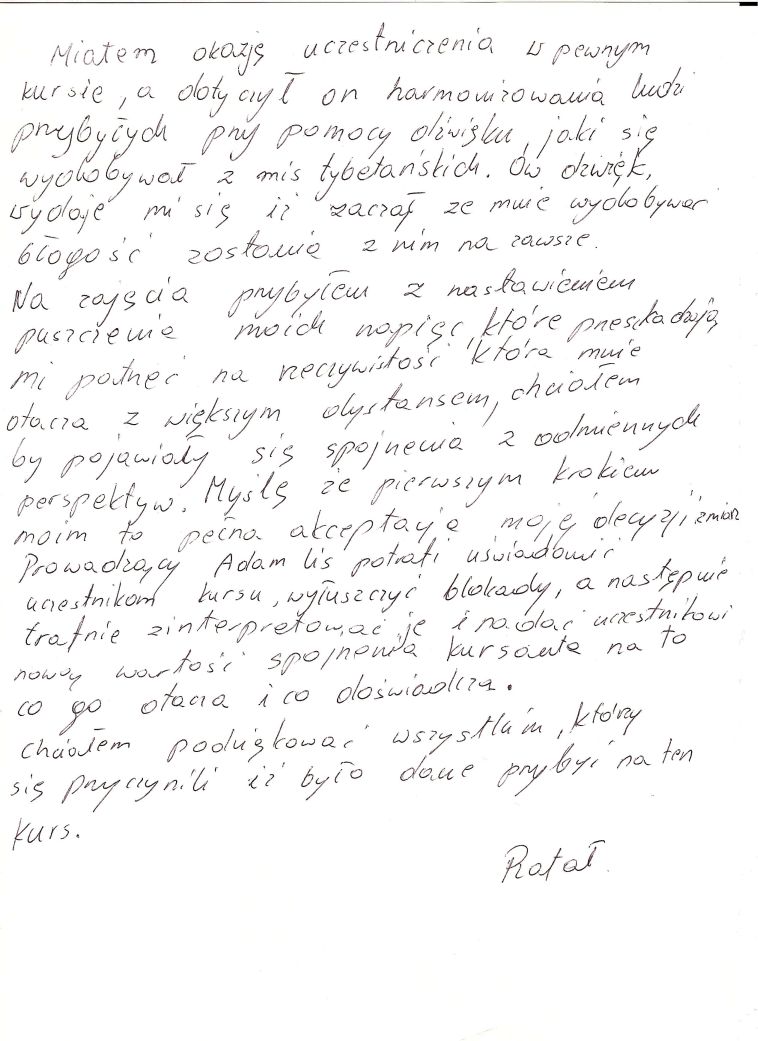 Miałem okazję uczestniczenia w pewnym
kursie, a dotyczył on harmonizowania ludzi
przybyłych przy pomocy dźwięku, jaki się
wydobywał z mis tybetańskich. Ów dźwięk,
wydaje mi się iż zaczął ze mnie wydobywać
błogość zostania z nim na zawsze.
Na zajęcia przybyłem z nastawieniem
puszczenia moich napięć, które przeszkadzają
mi patrzeć na rzeczywistość która mnie
otacza z większym dystansem, chciałem
by pojawiały się spojrzenia z odmiennych
perspektyw. Myślę że pierwszym krokiem
moim to pełna akceptacja moję decyzji i zmian
Prowadzący Adam Lis potrafi uświadomić
uczestnikom kursu, wyłuszczyć blokady, a następnie
trafnie zinterpretować je i nadać uczestnikowi
nową wartość spojrzenia kursanta na to
co go otacza i co doświadcza.
chciałem podziękować wszystkim, którzy
się przyczynili iż było dane przybyć na ten
kurs.
Rafał